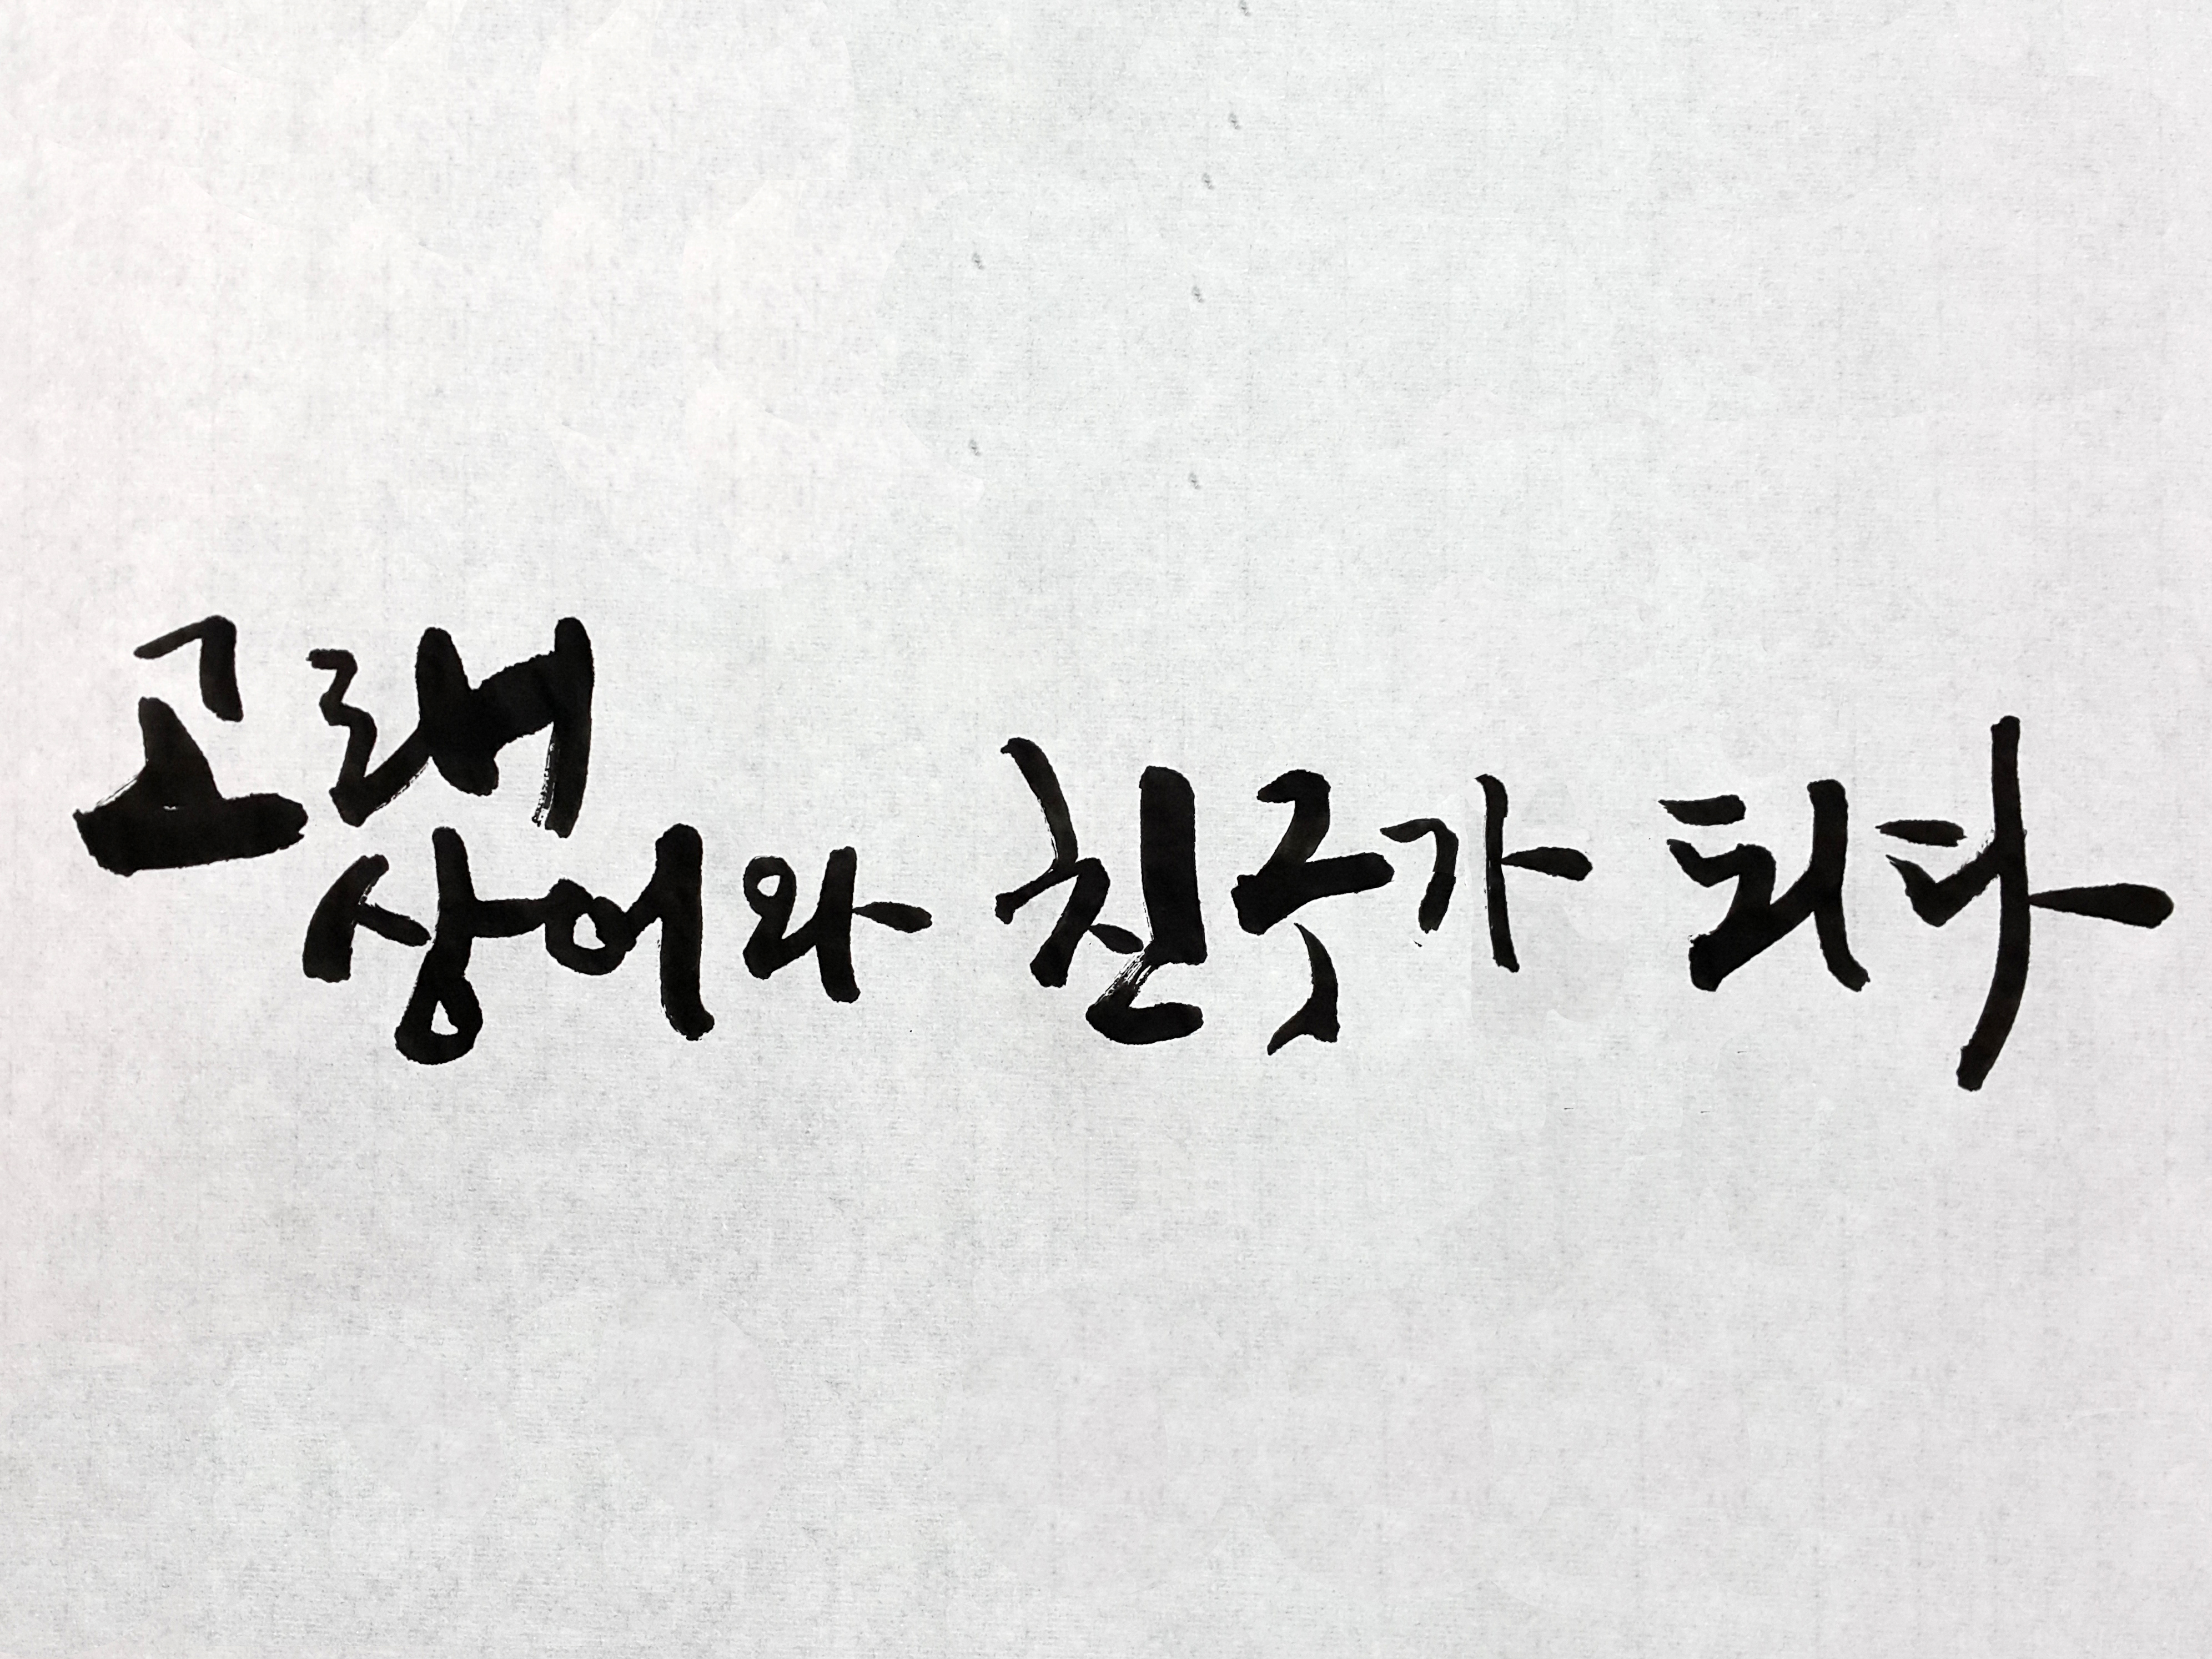 고래
상어와 친구가 되다